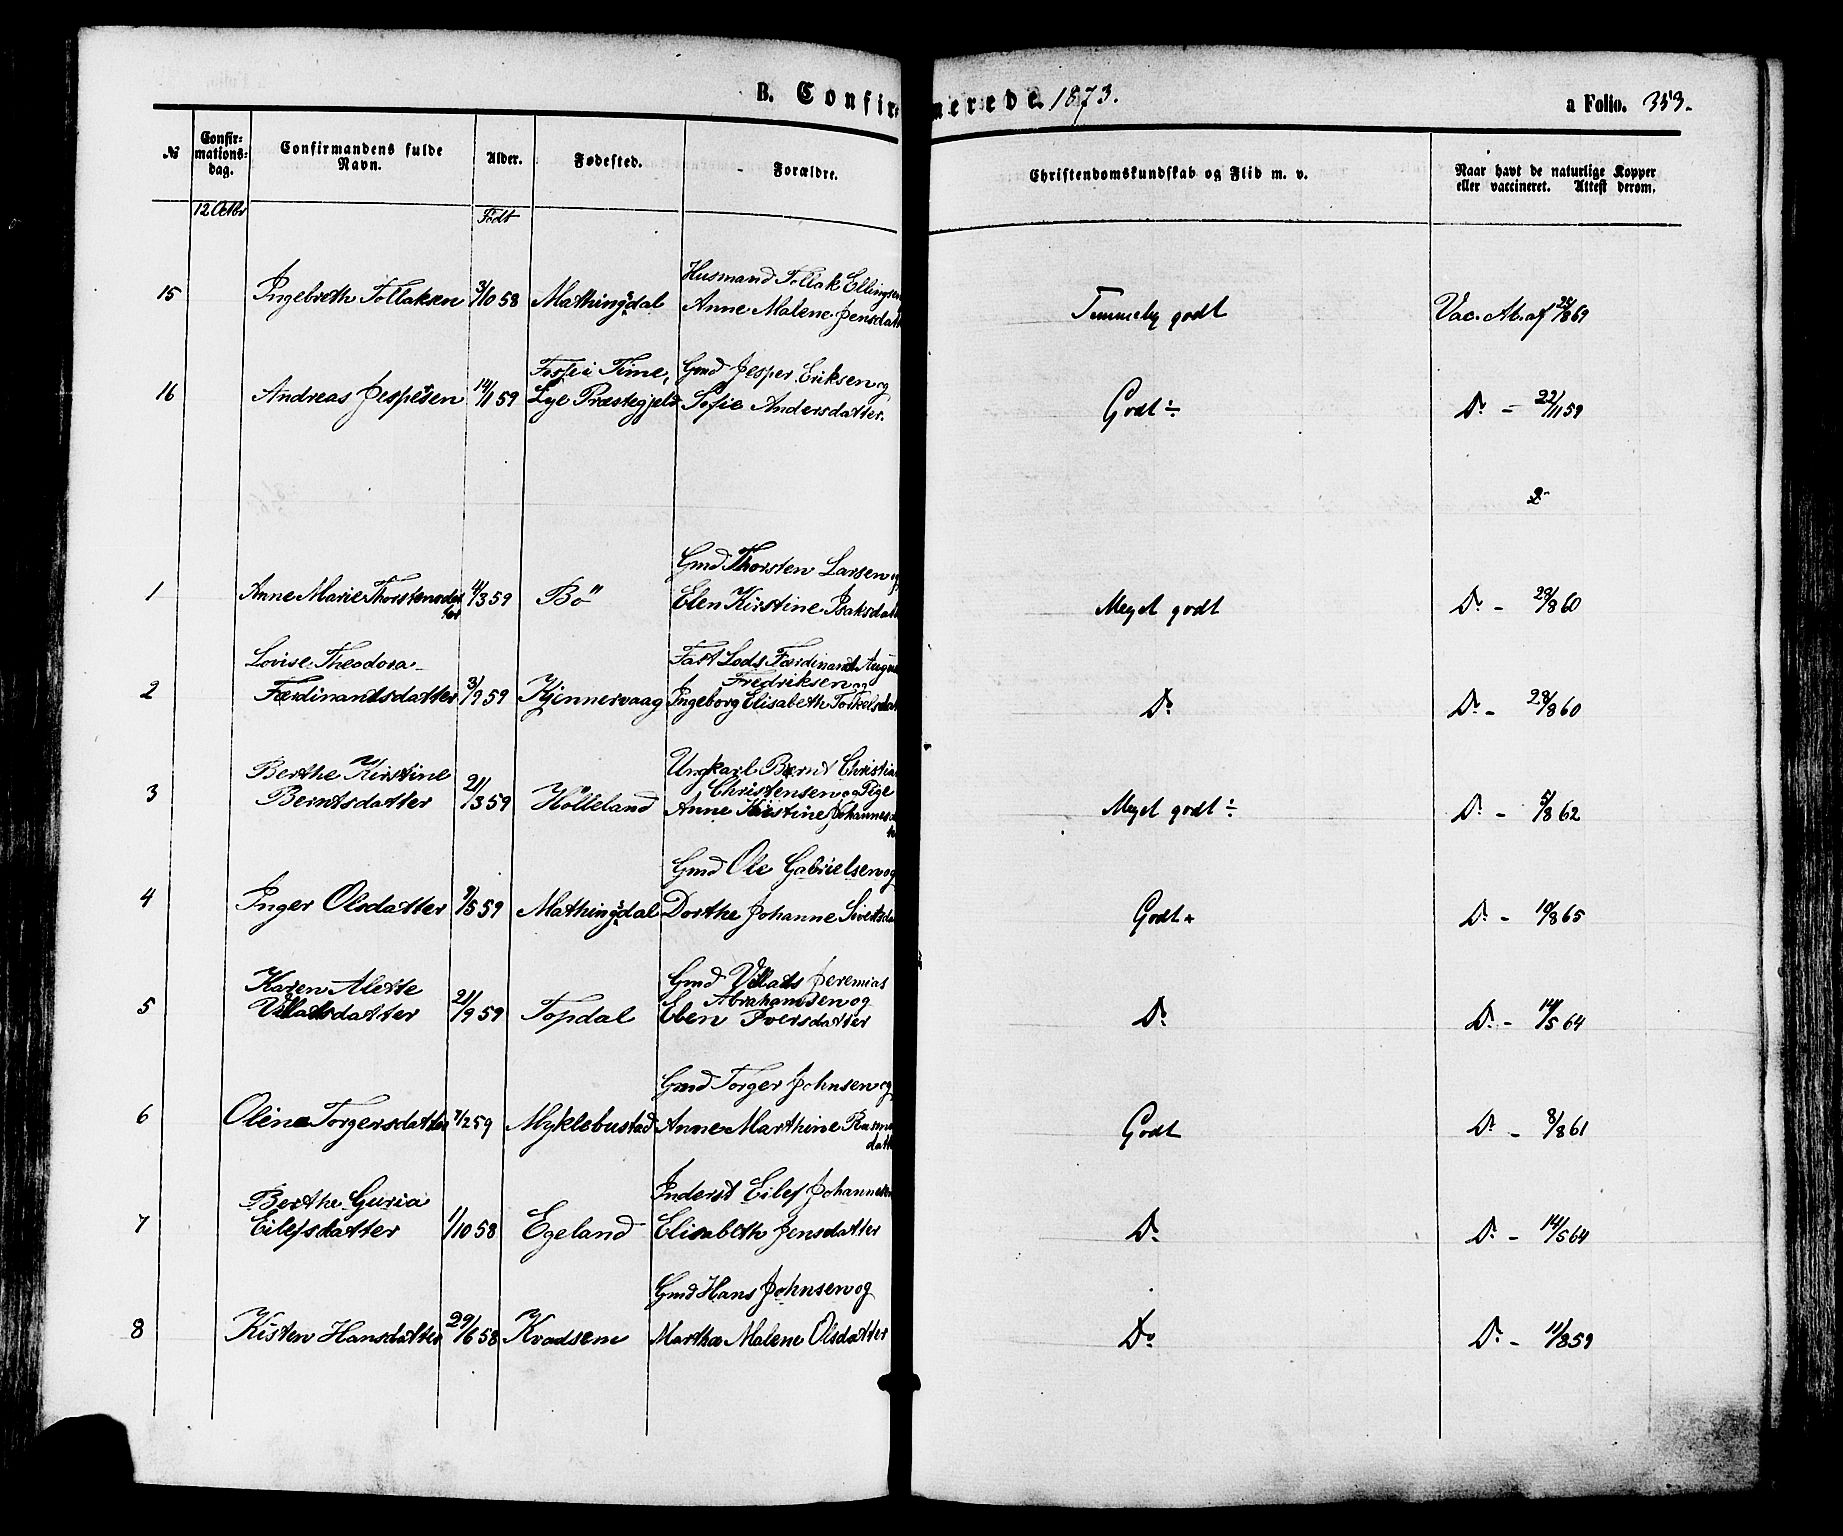 B. Confirmerede. 1873.
a Folio. 353.
№
Confir-
mations-
dag.
Confirmandens fulde
Navn.
Alder.
Fødested.
Forældre.
Christendomskundskab og Flid m. v.
Naar havt de naturlige Kopper
eller vaccineret. Attest derom.
12 Octbr
Født
15 Ingebreth Tollaksen 3/10 58 Mathingsdal
Husmand Tollak Ellingsen
Anne Malene Jensdatt
Temmelig godt
Vac. At. af 28/8 69
16 Andreas Jespersen 14/11 59
Tosse i Time,
Lye Præstegjeld
Gmd Jesper Eriksen og
Sofie Andersdatter.
Godt ÷
Do - 22/11 59
2
1 Anne Marie Thorstensdat
ter
11/3 59 Bö
Gmd Thorsten Larsen og
Elen Kirstine Isaksdatt
Meget godt
Do - 28/8 60
2 Lovise Theodora
Ferdinandsdatter 3/9 59 Kjennervaag
Fast Lods Ferdinand August
Fredriksen og
Ingeborg Elisabeth Torkelsdat
Do
Do - 28/8 60
3 Berthe Kirstine
Berntsdatter 21/3 59 Hölleland
Ungkarl Bernt Christian
Christensen og Pige
Anne Kirstine Johannesdat
ter
Meget godt ÷
Do - 5/8 62
4 Inger Olsdatter 9/5 59 Mathingsdal
Gmd Ole Gabrielsen og
Dorthe Johanne Sivertsda
Godt +
Do - 10/8 65
5 Karen Alette
Villatsdatter 21/9 59 Topdal
Gmd Villats Jeremias
Abrahamsen og
Eben Iversdatter
Do
Do - 14/5 64
6 Oline Torgersdatter 7/2 59 Myklebustad
Gmd Torger Johnsen og
Anne Marthine Rasmus
datt
Godt
Do - 8/8 61
7 Berthe Guria
Eilefsdatter 1/10 58 Egeland
Inderst Eilef Johannesen
Elisabeth Jensdatter
Do
Do - 14/5 64
8 Kisten Hansdatter 29/6 58 Kvadsem
Gmd Hans Johnsen og
Martha Malene Olsdatter
Do
Do - 11/8 59